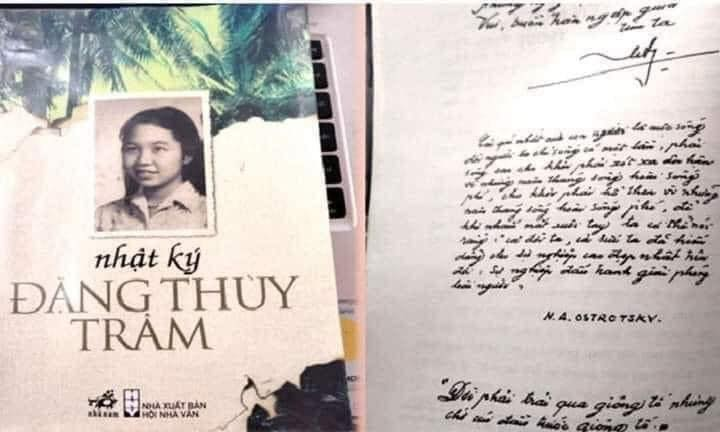 nhật ký
ĐẶNG THÙY
TRÂM
nhã nam
NHÀ XUẤT BẢN
HỘI NHÀ VĂN
Vui, buồn tràn ngập giữa
tim ta
Cái quí nhất của con người là cuộc sống
đời người ta chỉ sống có một lần, phải
sống sao cho khỏi phải xót xa ân hận
vì những năm tháng sống hoài sống
phí, cho khỏi phải hổ thẹn vì những
năm tháng sống hoài sống phí, để
khi nhắm mắt xuôi tay ta có thể nói
rằng : cả đời ta, cả sức ta đã hiến
dâng cho sự nghiệp cao đẹp nhất trên
đời, sự nghiệp đấu tranh giải phóng
loài người"
N.A. OSTROTSKY.
"Đời phải trải qua giông tố nhưng
chớ cúi đầu trước giông tố".